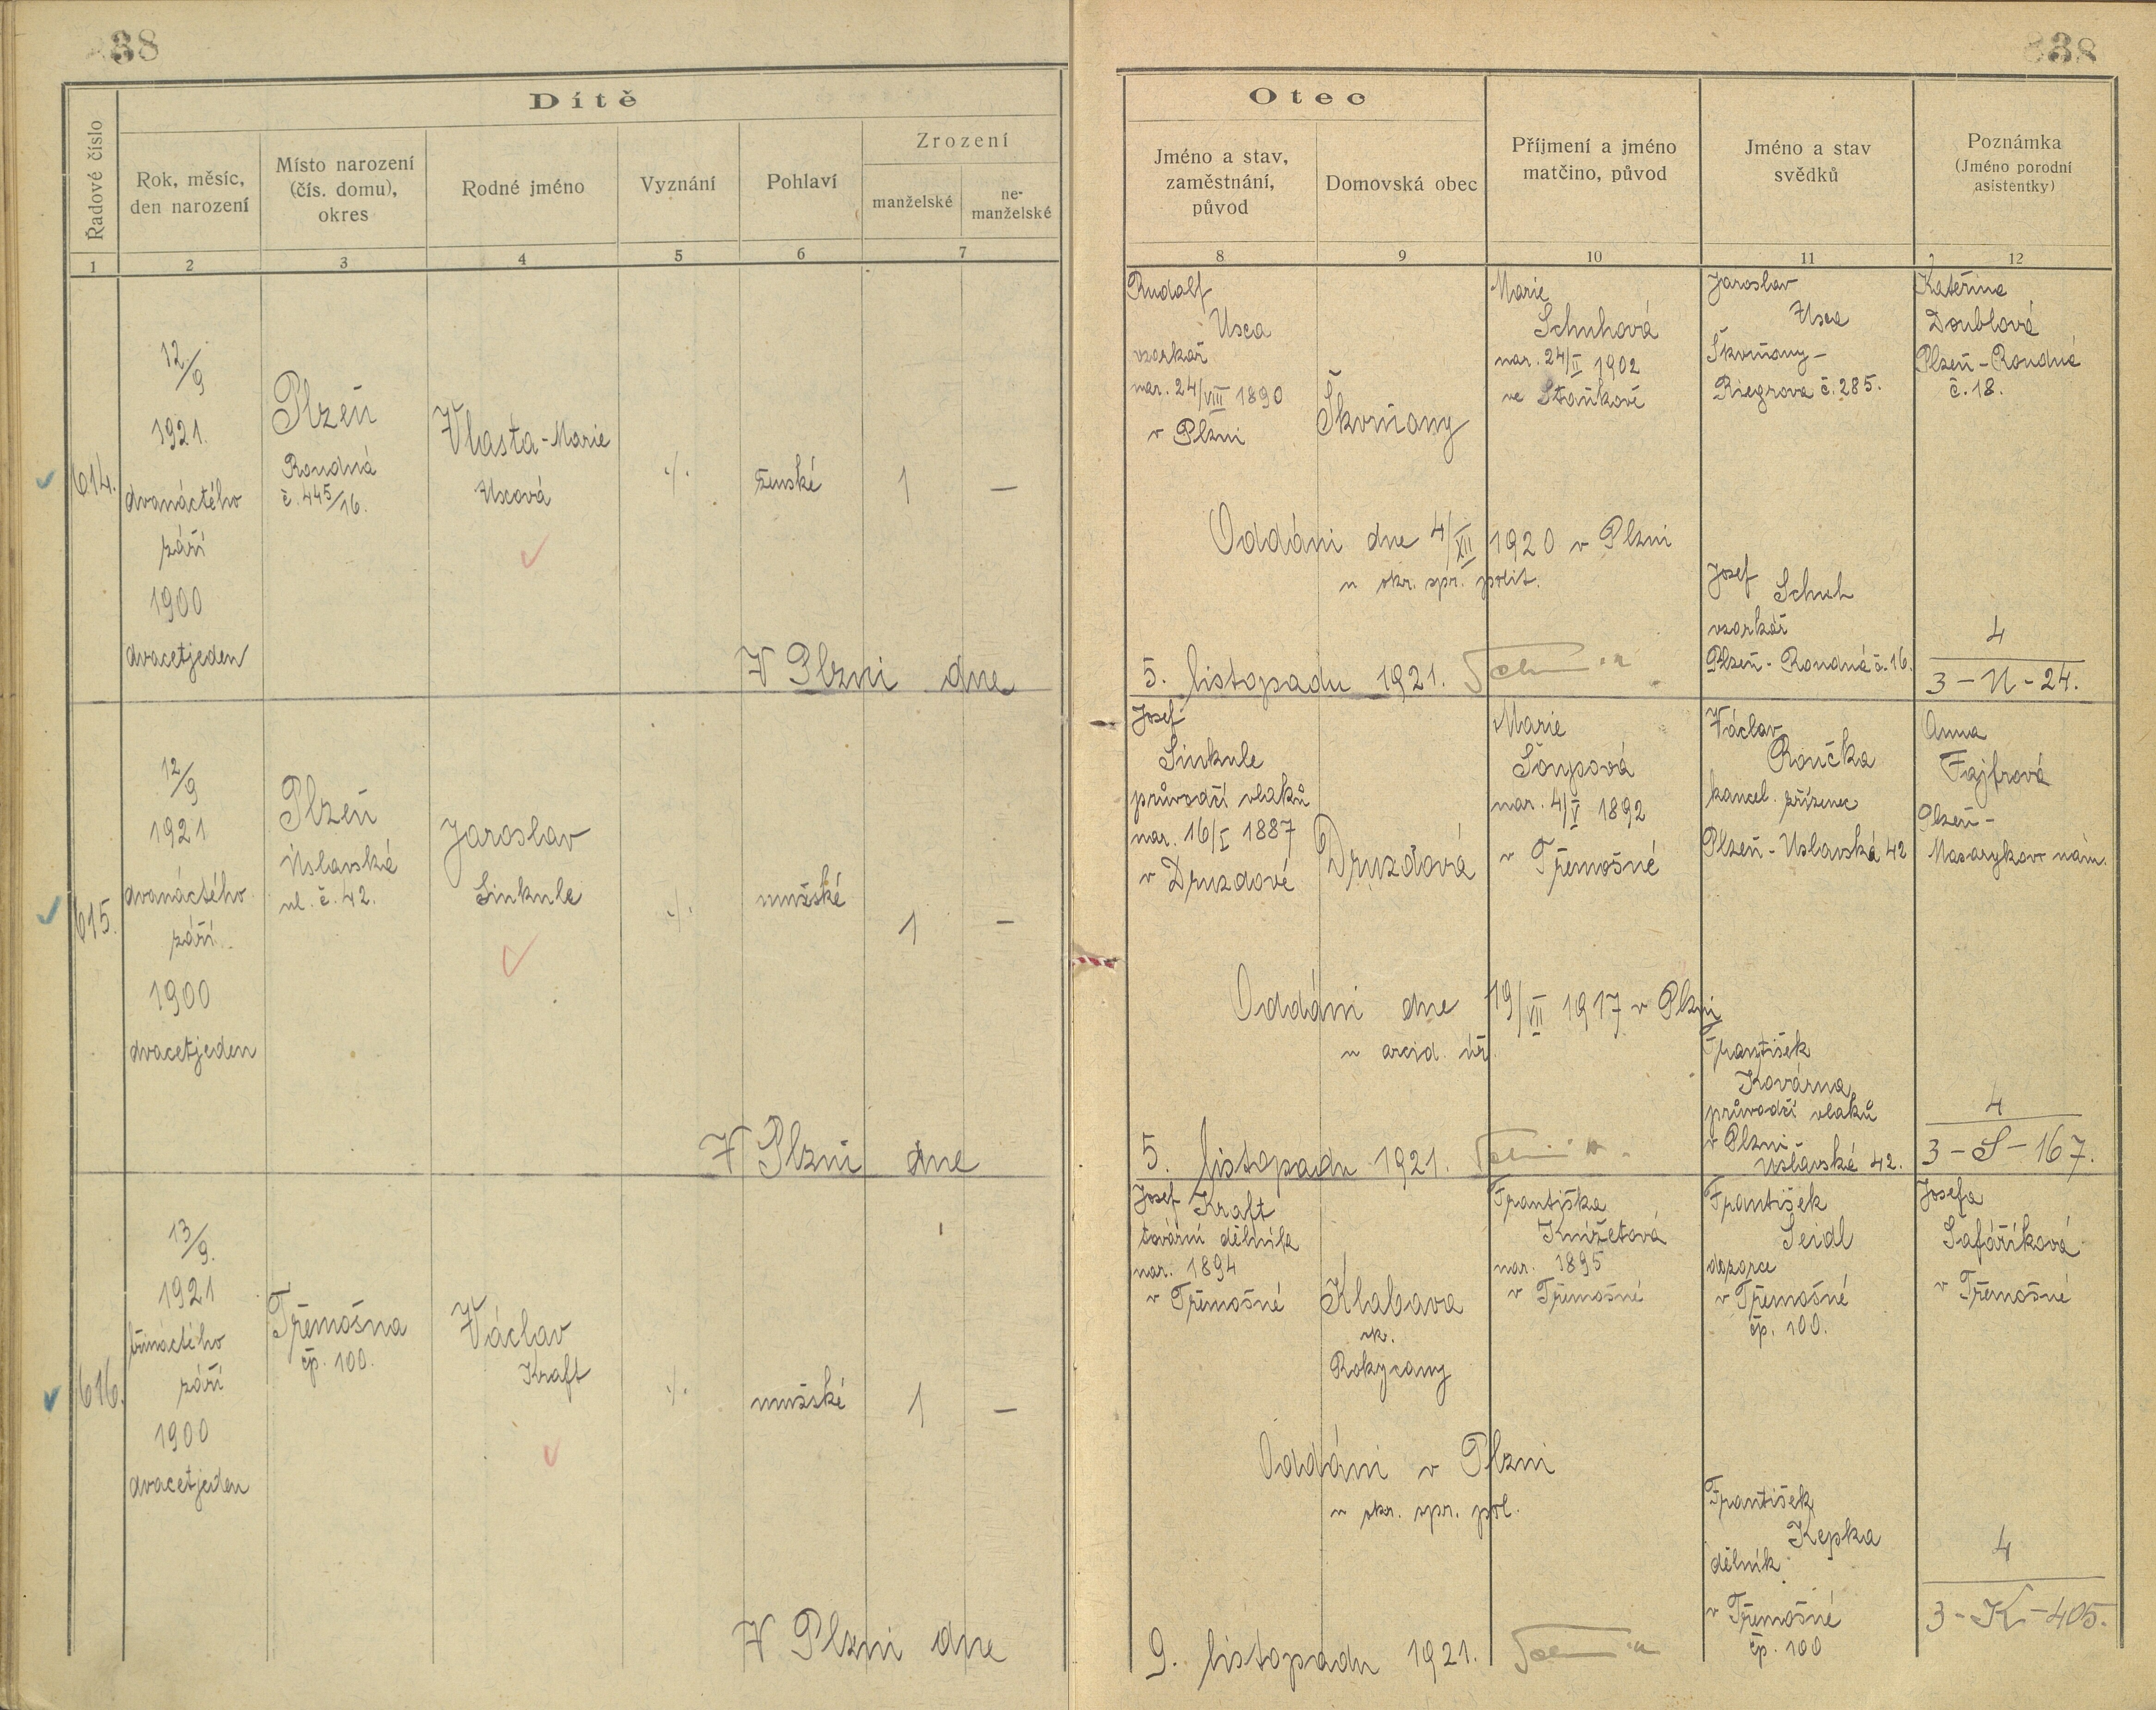 38
Dítě
Řadové číslo
Rok, měsíc,
den narození
Místo narození
(čís. domu),
okres
Rodné jméno
Vyznání
Pohlaví
Zrození
manželské
ne-
manželské
1
2
3
4
5
6
7
614.
12/9
1921.
dvanáctého
září
1900
dvacetjeden
Plzeň
Roudná
č. 445/16.
Vlasta-Marie
Uscová
·/·
ženské
1
—
V Plzni dne
615.
12/9
1921
dvanáctého
září
1900
dvacetjeden
Plzeň
Úslavská
ul. č. 42.
Jaroslav
Sinkule
·/·
mužské
1
—
V Plzni dne
616.
13/9.
1921
třináctého
září
1900
dvacetjeden
Třemošna
čp. 100.
Václav
Kraft
·/·
mužské
1
—
V Plzni dne
838
Otec
Jméno a stav,
zaměstnání,
původ
Domovská obec
Příjmení a jméno
matčino, původ
Jméno a stav
svědků
Poznámka
(Jméno porodní
asistentky)
8
9
10
11
12
Rudolf
Usca
vzorkař
nar. 24/VIII 1890
v Plzni
Škvrňany
Marie
Schuhová
nar. 24/II 1902
ve Staňkově
Jaroslav
Usca
Škvrňany-
Riegrova č. 285.
Kateřina
Doublová
Plzeň-Roudná
č. 18.
Oddáni dne 4/XII 1920 v Plzni
u okr. spr. polit.
Josef
Schuh
vzorkař
Plzeň-Roudná č. 16.
4
3-U-24.
5. listopadu 1921.
Josef
Sinkule
průvodčí vlaků
nar. 16/I 1887
v Druzdově
Druzdová
Marie
Šoupová
nar. 4/V 1892
v Třemošné
Václav
Roučka
kancel. zřízenec
Plzeň-Úslavská 42
Anna
Fajfrová
Plzeň-
Masarykovo nám.
Oddáni dne 19/VII 1917 v Plzni
u arcid. úř.
František
Kovárna
průvodčí vlaků
v Plzni-
Úslavská 42.
4
3-S-167.
5. listopadu 1921.
Josef Kraft
tovární dělník
nar. 1894
v Třemošné
Klabava
ok.
Rokycany
Františka
Knížetová
nar. 1895
v Třemošné
František
Seidl
dozorce
v Třemošné
čp. 100.
Josefa
Šafaříková
v Třemošné
Oddáni v Plzni
u okr. spr. pol.
František
Kepka
dělník
v Třemošné
čp. 100
4
3-K-405.
9. listopadu 1921.